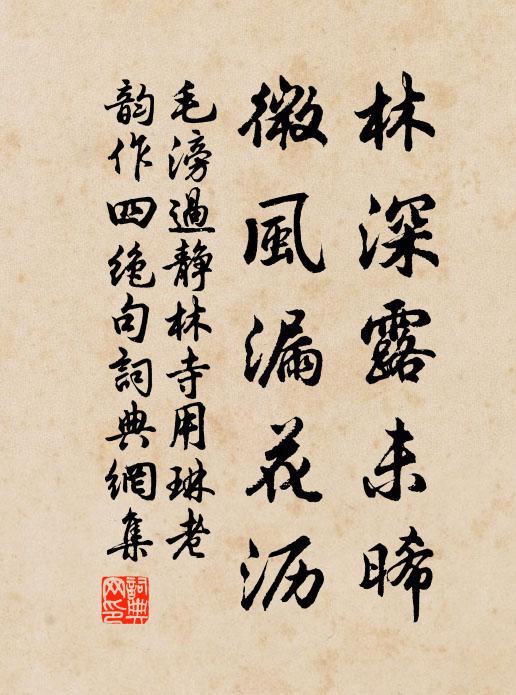 林深露未晞
微風漏花沥
毛滂過靜林寺用琳老
韵作四绝句詞典網集
詞典網印